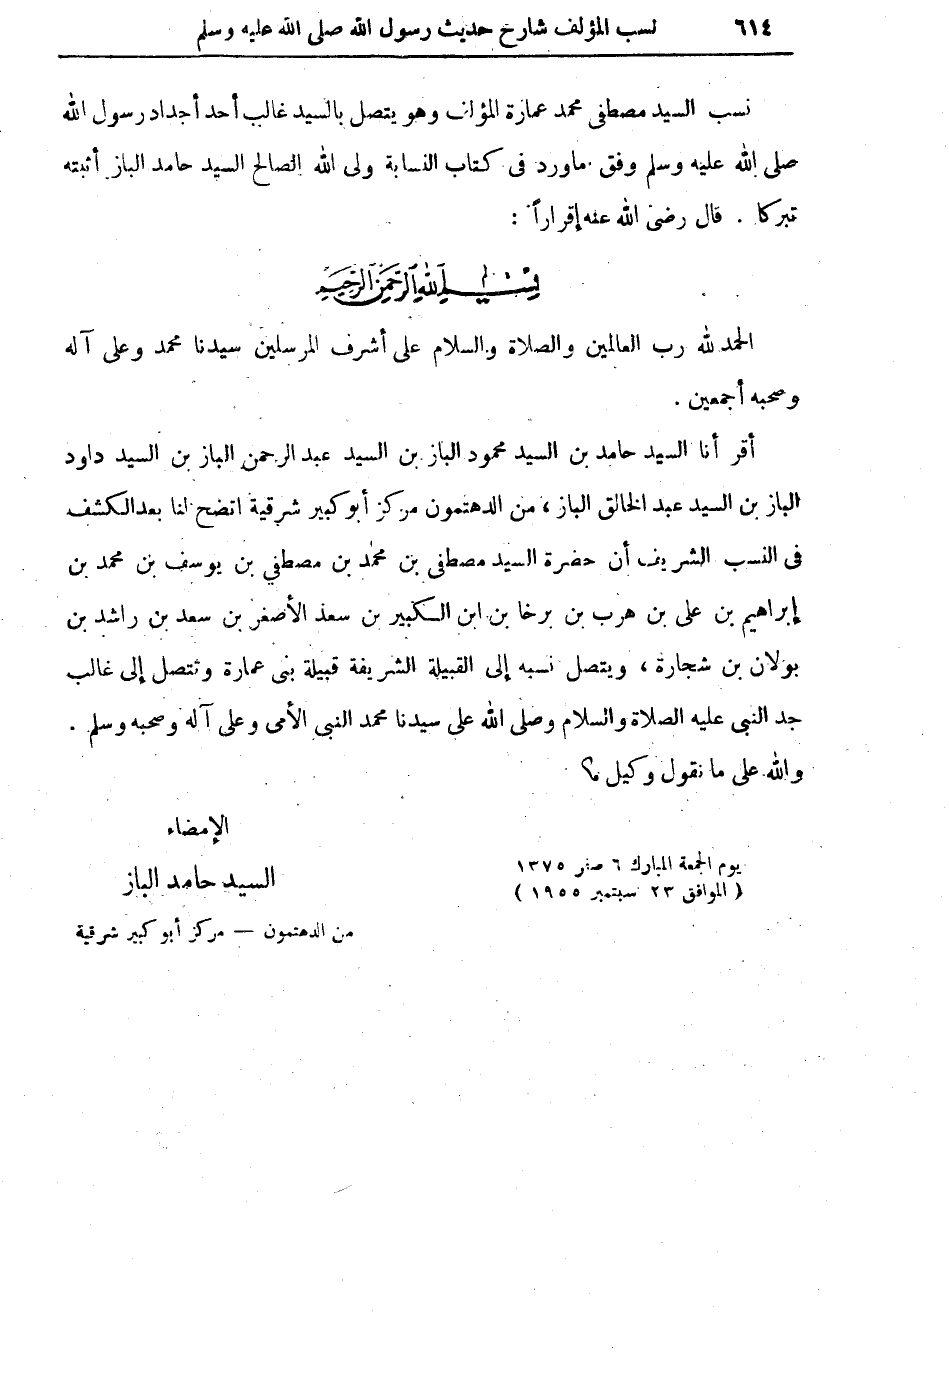 ٦١٤ نسب المؤلف شارح حديث رسول الله صلى الله عليه وسلم
نسب السيد مصطفى محمد عمارة المؤلف وهو يتصل بالسيد غالب أحد أجداد رسول الله
صلى الله عليه وسلم وفق ماورد فى كتاب النسابة ولى الله الصالح السيد حامد الباز أثبته
تبركا . قال رضى الله عنه إقراراً :
بسم الله الرحمن الرحيم
الحمد لله رب العالمين والصلاة والسلام على أشرف المرسلين سيدنا محمد وعلى آله
وصحبه أجمعين .
أقر أنا السيد حامد بن السيد محمود الباز بن السيد عبد الرحمن الباز بن السيد داود
الباز بن السيد عبد الخالق الباز ، من الدهتمون مركز أبو كبير شرقية اتضح لنا بعد الكشف
فى النسب الشريف أن حضرة السيد مصطفى بن محمد بن مصطفي بن يوسف بن محمد بن
إبراهيم بن على بن هرب بن برخا بن ابن الكبير بن سعد الأصغر بن سعد بن راشد بن
بولان بن شجارة ، ويتصل نسبه إلى القبيلة الشريفة قبيلة بنى عمارة وتتصل إلى غالب
جد النبي عليه الصلاة والسلام وصلى الله على سيدنا محمد النبي الأمى وعلى آله وصحبه وسلم .
والله على ما نقول وكيل ؟
الإمضاء
يوم الجمعة المبارك ٦ صفر ١٣٧٥
السيد حامد الباز
( الموافق ٢٣ سبتمبر ١٩٥٥ )
من الدهتمون — مركز أبو كبير شرقية